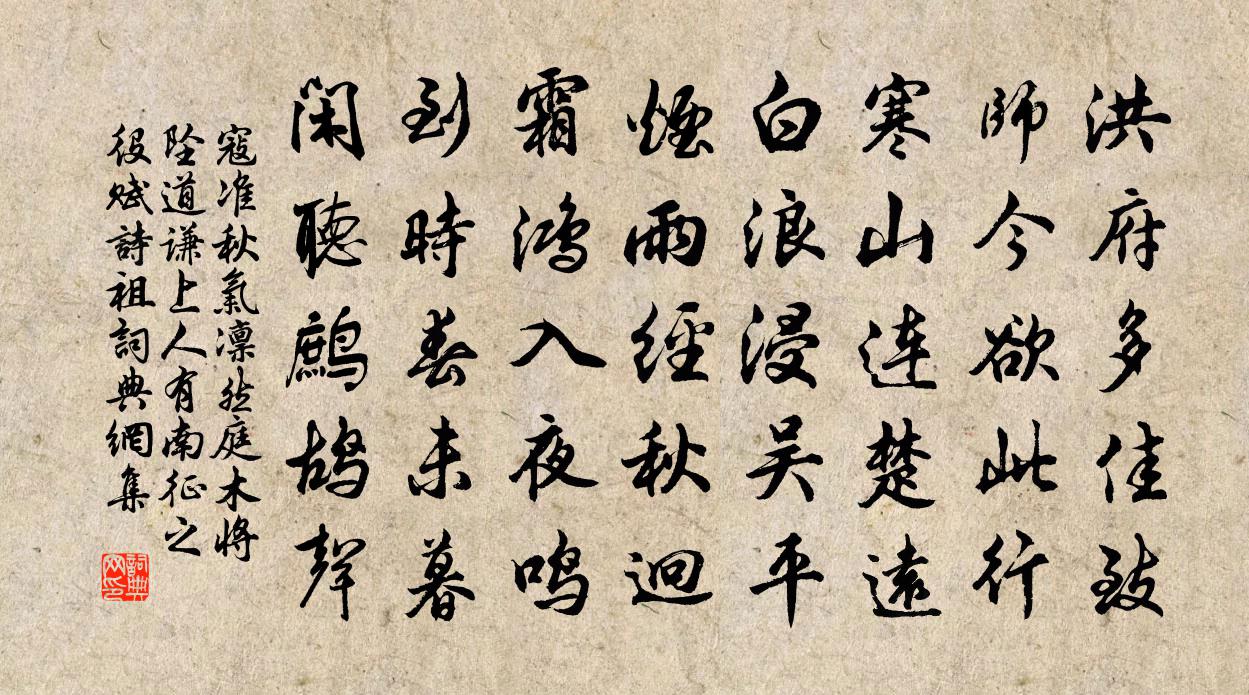 洪府多佳致
師今欲此行
寒山連楚遠
白浪浸吴平
煙雨經秋迥
霜鴻入夜鳴
到時春未暮
閑聽鷓鴣聲
寇准秋氣凛然庭木將
坠道谦上人有南征之
役赋詩祖詞典網集
詞典
网印